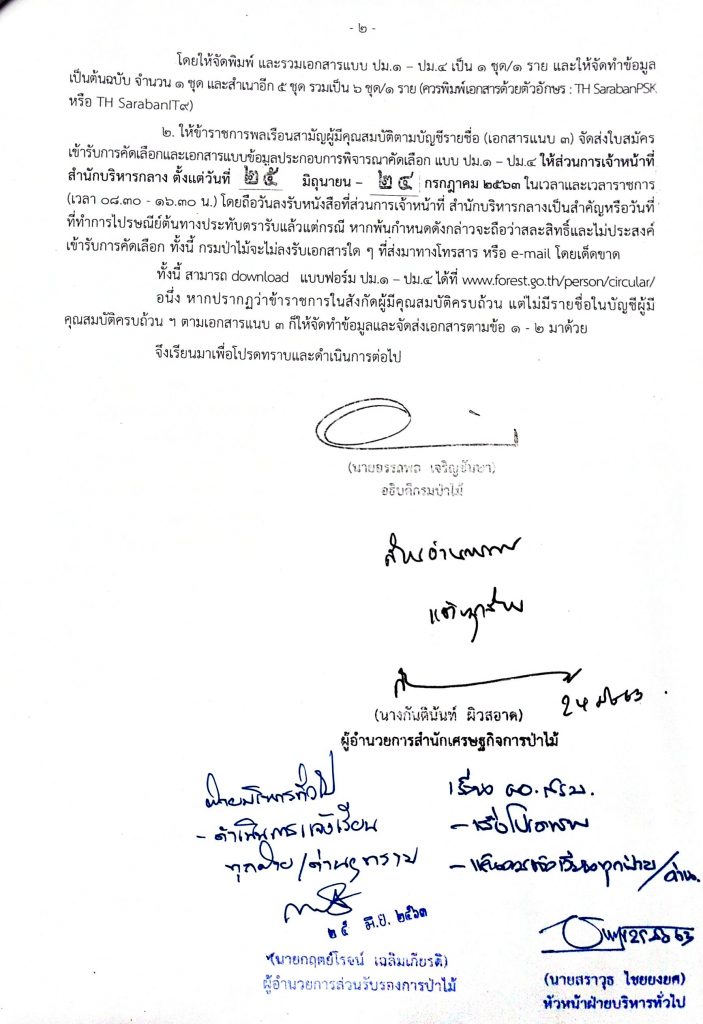 - ๒ -
โดยให้จัดพิมพ์ และรวมเอกสารแบบ ปม.๑ – ปม.๔ เป็น ๑ ชุด/๑ ราย และให้จัดทำข้อมูล
เป็นต้นฉบับ จำนวน ๑ ชุด และสำเนาอีก ๕ ชุด รวมเป็น ๖ ชุด/๑ ราย (ควรพิมพ์เอกสารด้วยตัวอักษร : TH SarabanPSK
หรือ TH SarabanIT๙)
๒. ให้ข้าราชการพลเรือนสามัญผู้มีคุณสมบัติตามบัญชีรายชื่อ (เอกสารแนบ ๓) จัดส่งใบสมัคร
เข้ารับการคัดเลือกและเอกสารแบบข้อมูลประกอบการพิจารณาคัดเลือก แบบ ปม.๑ – ปม.๔ ให้ส่วนการเจ้าหน้าที่
สำนักบริหารกลาง ตั้งแต่วันที่ ๒๕ มิถุนายน – ๒๔ กรกฎาคม ๒๕๖๓ ในเวลาและเวลาราชการ
(เวลา ๐๘.๓๐ - ๑๖.๓๐ น.) โดยถือวันลงรับหนังสือที่ส่วนการเจ้าหน้าที่ สำนักบริหารกลางเป็นสำคัญหรือวันที่
ที่ทำการไปรษณีย์ต้นทางประทับตรารับแล้วแต่กรณี หากพ้นกำหนดดังกล่าวจะถือว่าสละสิทธิ์และไม่ประสงค์
เข้ารับการคัดเลือก ทั้งนี้ กรมป่าไม้จะไม่ลงรับเอกสารใด ๆ ที่ส่งมาทางโทรสาร หรือ e-mail โดยเด็ดขาด
ทั้งนี้ สามารถ download แบบฟอร์ม ปม.๑ – ปม.๔ ได้ที่ www.forest.go.th/person/circular/
อนึ่ง หากปรากฏว่าข้าราชการในสังกัดผู้มีคุณสมบัติครบถ้วน แต่ไม่มีรายชื่อในบัญชีผู้มี
คุณสมบัติครบถ้วน ฯ ตามเอกสารแนบ ๓ ก็ให้จัดทำข้อมูลและจัดส่งเอกสารตามข้อ ๑ - ๒ มาด้วย
จึงเรียนมาเพื่อโปรดทราบและดำเนินการต่อไป
(นายอรรถพล เจริญชันษา)
อธิบดีกรมป่าไม้
(นางกันตินันท์ ผิวสอาด)
ผู้อำนวยการสำนักเศรษฐกิจการป่าไม้
ฝ่ายบริหารทั่วไป
- ดำเนินการแจ้งเวียน
ทุกฝ่าย/ด่านฯ ทราบ
๒๕ มิ.ย. ๒๕๖๓
(นายกฤตย์โรจน์ เฉลิมเกียรติ)
ผู้อำนวยการส่วนรับรองการป่าไม้
เรียน ผอ.สรบ.
- เพื่อโปรดทราบ
- เห็นควรแจ้งเวียนทุกฝ่าย/ด่านฯ
(นายสราวุธ ไชยยงยศ)
หัวหน้าฝ่ายบริหารทั่วไป